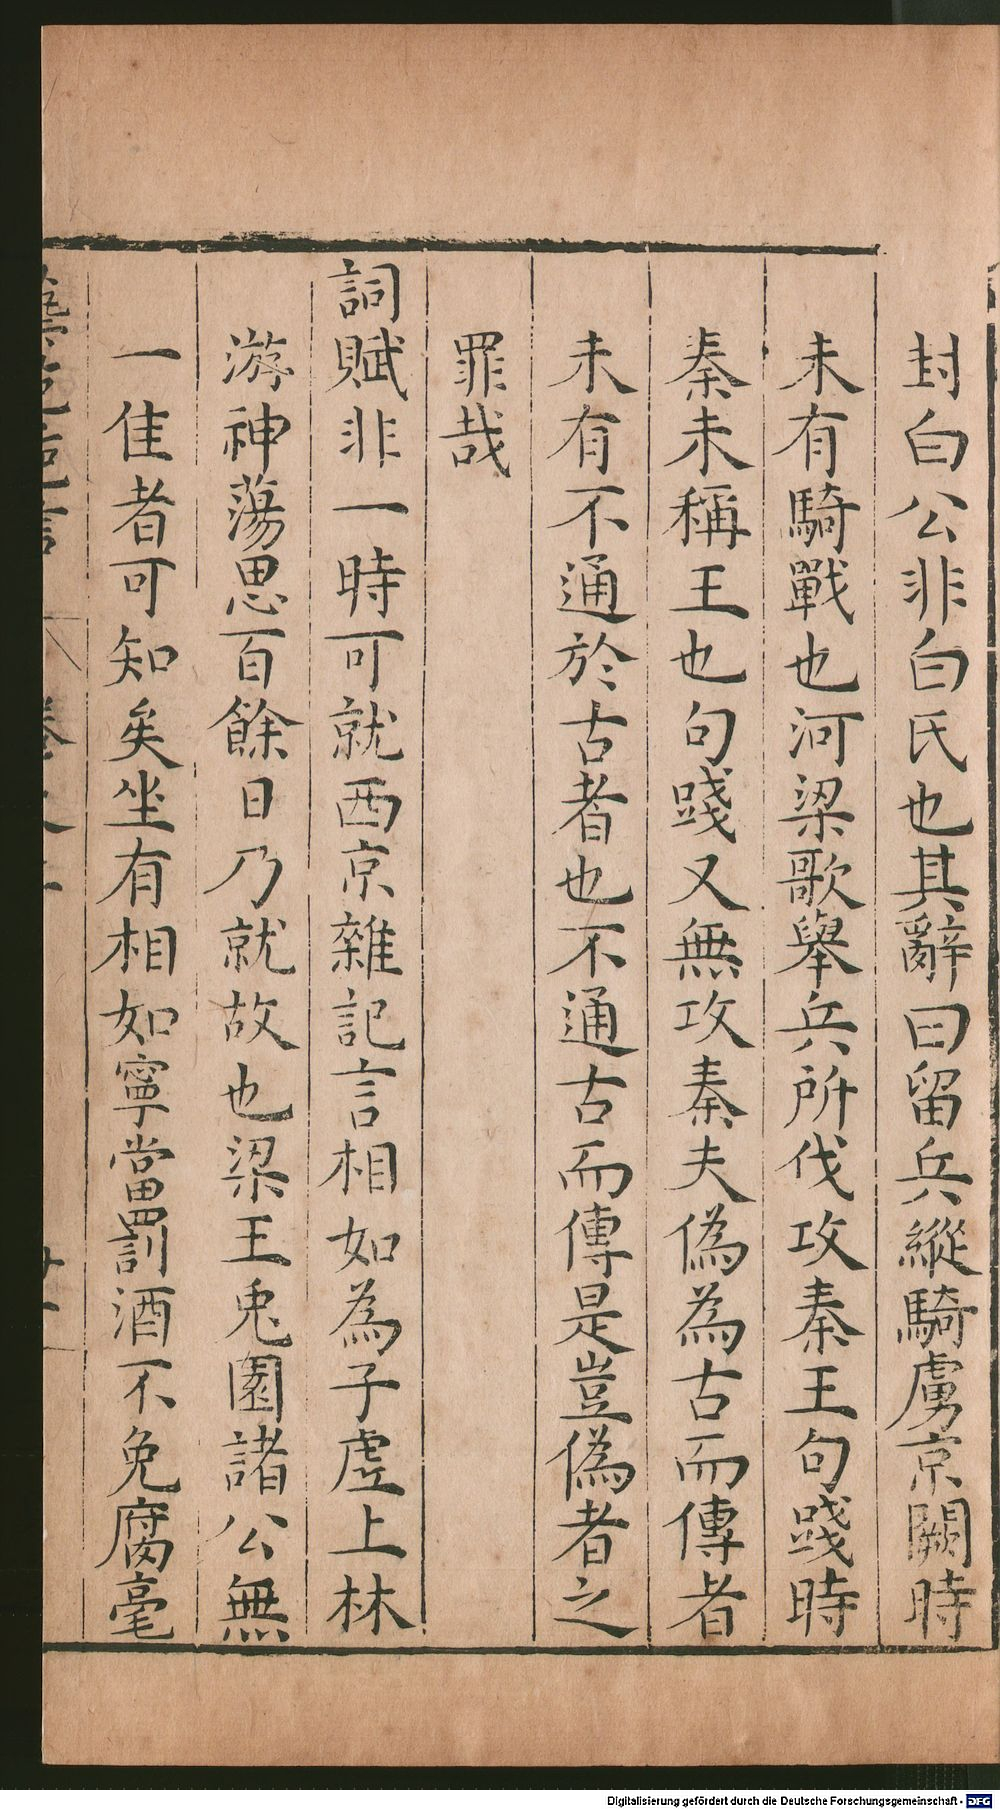 封白公非白氏也其辭曰留兵縱騎虜京闕時
未有騎戰也河梁歌舉兵所伐攻秦王句踐時
秦未稱王也句踐又無攻秦夫偽為古而傳者
未有不通於古者也不通古而傳是豈偽者之
罪哉
詞賦非一時可就西京雜記言相如為子虛上林
游神蕩思百餘日乃就故也梁王兎園諸公無
一佳者可知矣坐有相如寧當罰酒不免腐毫
Digitalisierung gefördert durch die Deutsche Forschungsgemeinschaft - DFG